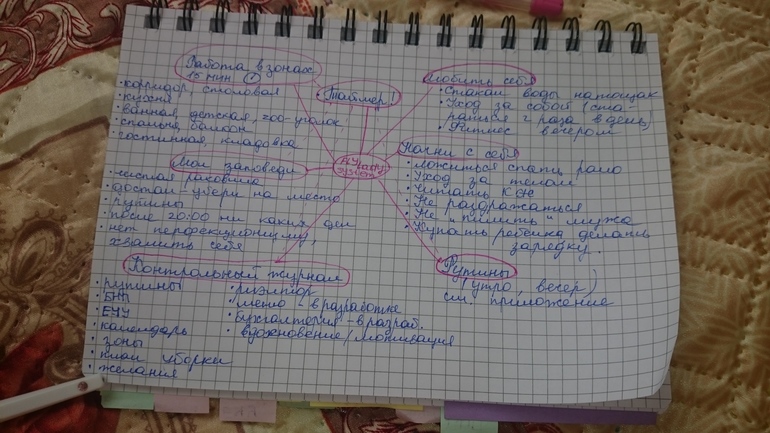 Работа в зонах
15 мин
• коридор, столовая
• кухня
• ванная, детская, зоо-уголок,
• спальня, балкон
• гостинная, кладовка
Таймер
Любить себя
• Стакан воды натощак
• Уход за собой (ста-
раться 2 раза в день)
• Фитнес вечером
Мои заповеди
• чистая раковина
• достал - убери на место
• рутины
• после 20:00 ни каких дел
• нет перфекционизму,
хвалить себя
Начни с себя
• Ложиться спать рано
• Уход за телом
• Читать
• Не раздражаться
• Не "пилить" мужа
• Купать ребенка делать
зарядку.
Контрольный журнал
• рутины
• БНП
• ЕЧУ
• календарь
• зоны
• план уборки
• желания
• риэлтор
• меню - в разработке
• бухгалтерия - в разраб.
• вдохновение/мотивация
Рутины
(утро, вечер)
см. приложение